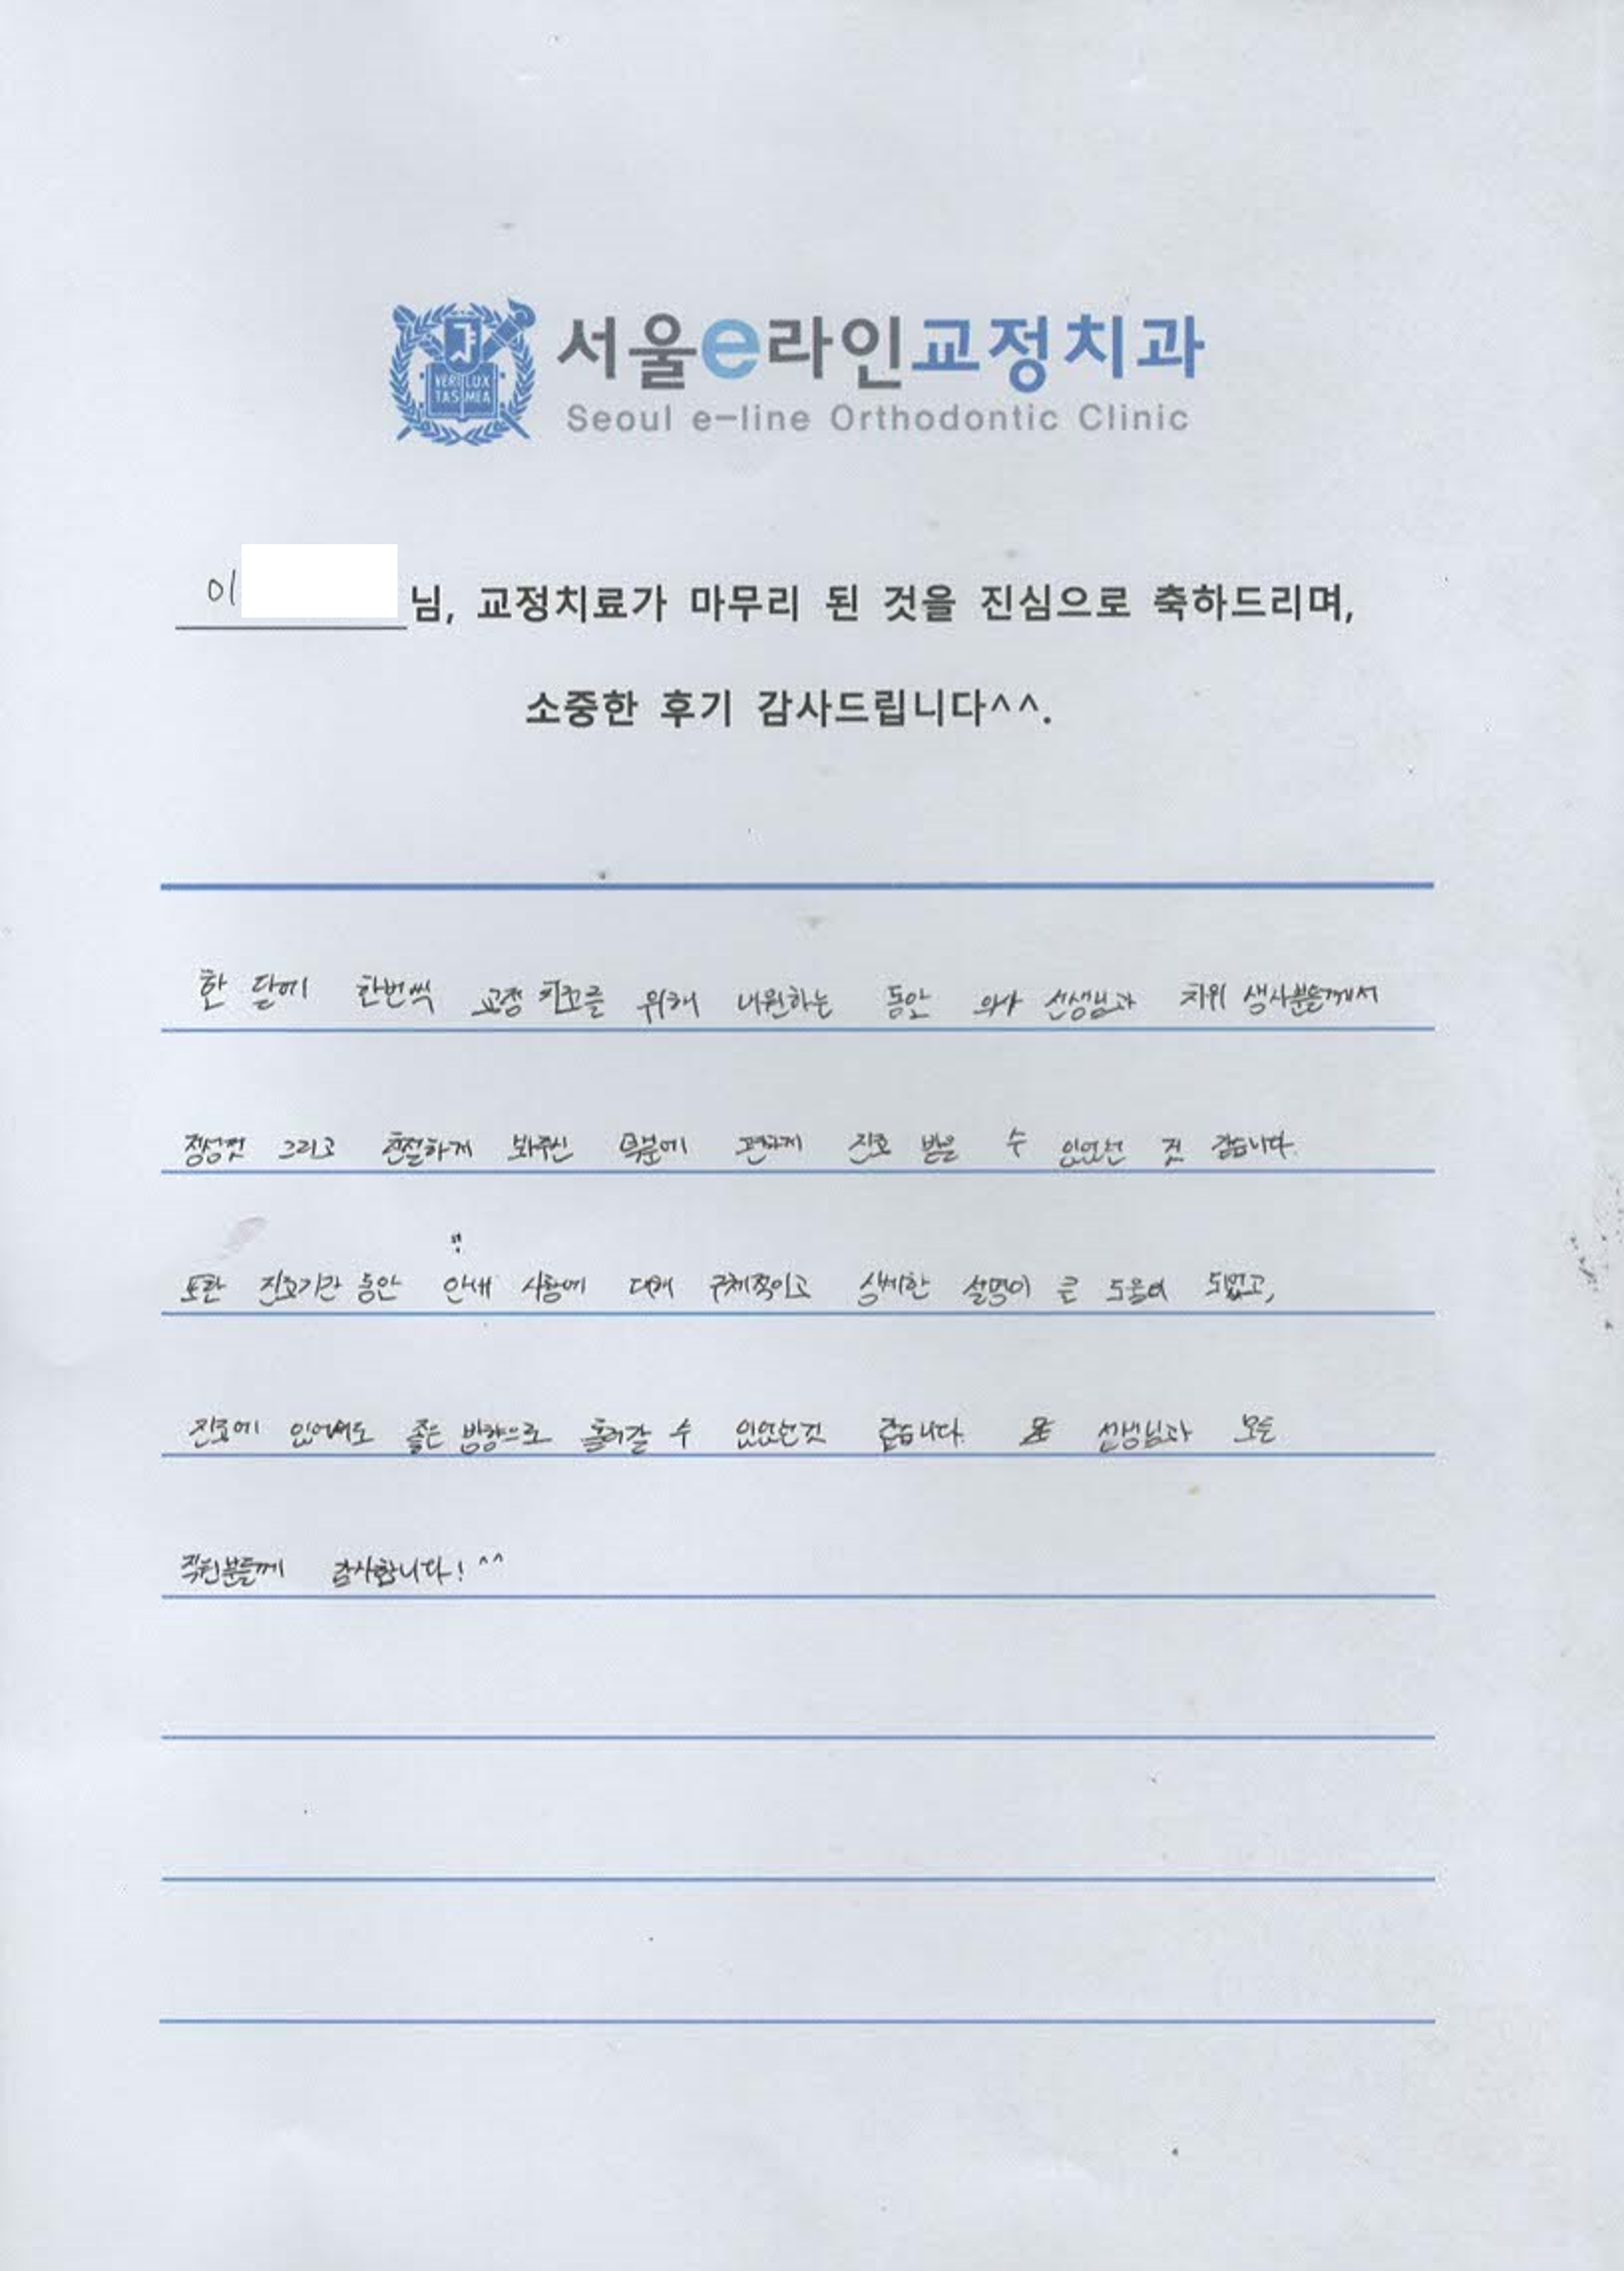 VERI LUX
TAS MEA
서울e라인교정치과
Seoul e-line Orthodontic Clinic
이 님, 교정치료가 마무리 된 것을 진심으로 축하드리며,
소중한 후기 감사드립니다^^.
한 달에 한번씩 교정 치료를 위해 내원하는 동안 의사 선생님과 치위 생사분들께서
정성껏 그리고 친절하게 봐주신 덕분에 편하게 진료 받을 수 있었던 것 같습니다.
또한 진료기간 동안 안내 사항에 대해 구체적이고 상세한 설명이 큰 도움이 되었고,
진료에 있어서도 좋은 방향으로 흘러갈 수 있었던것 같습니다. 선생님과 모든
직원분들께 감사합니다! ^^